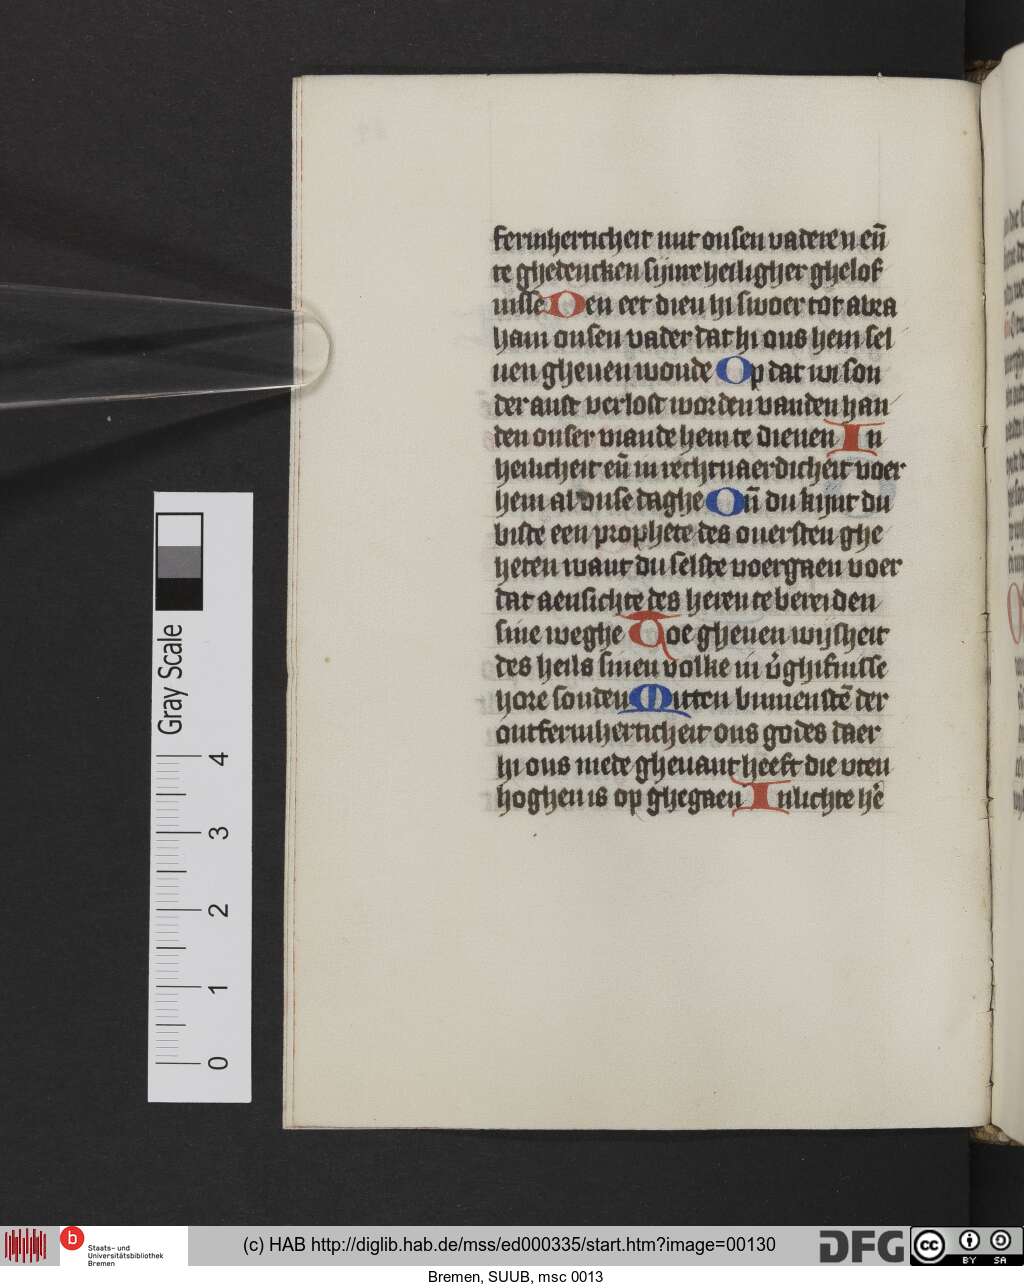 fermherticheit mit onsen vaderen en̄
te ghedencken sijnre heiligher ghelof
nisse Den eet dien hi swoer tot abra
ham onsen vader dat hi ons hem sel
uen gheuen woude Op dat wi son
der anst verlost worden vanden han
den onser viande hem te dienen In
heilicheit en̄ in rechtuaerdicheit voer
hem al onse daghe On̄ du kijnt du
biste een prophete des ouersten ghe
heten want du selste voergaen voer
dat aensichte des heren te bereiden
sine weghe Toe gheuen wijsheit
des heils sinen volke in v̄ghifnisse
hore sonden Mitten binnenstē der
ontfermherticheit ons godes daer
hi ons mede gheuant heeft die vten
hoghen is op ghegaen Inlichte hē
Gray Scale
0 1 2 3 4
b
Staats- und
Universitätsbibliothek
Bremen
(c) HAB http://diglib.hab.de/mss/ed000335/start.htm?image=00130
DFG
cc BY SA
Bremen, SUUB, msc 0013